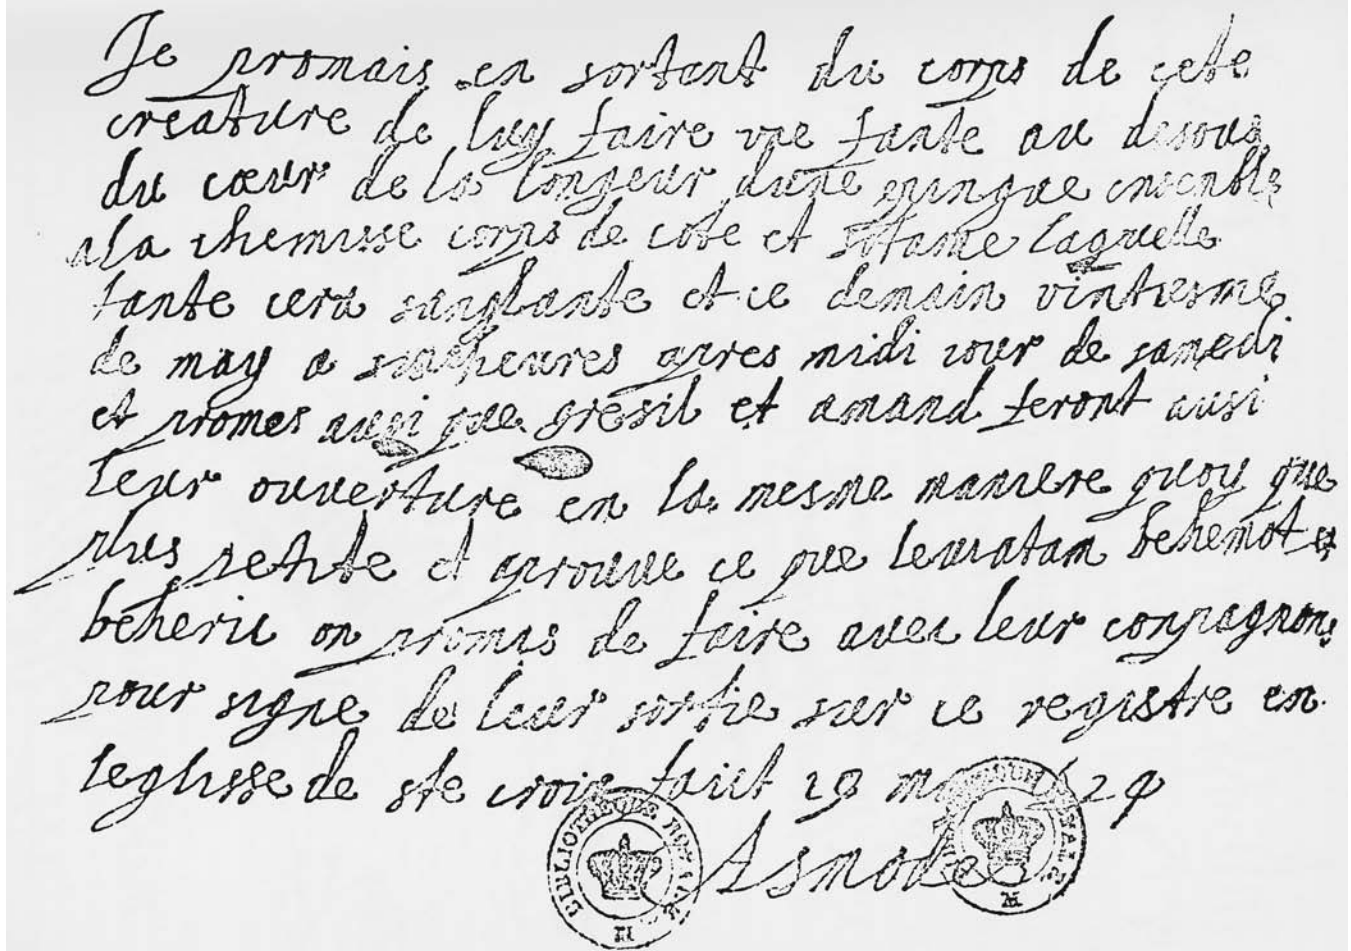 Je promais en sortant du corps de cete
creature de luy faire une fante au desous
du cœur de la longeur dune epingue ensenble
ala chemisse corps de cote et sotame laquelle
fante cera sanglante et ce demain vintiesme
de may a sincheures apres midi iour de samedi
et promes ausi que gresil et amand feront ausi
leur ouverture en la mesme maniere quoy que
plus petite et aprouve ce que leviatam behemot et
beherie on promis de faire avec leur conpagnons
pour signe de leur sortie sur ce registre en
leglisse de ste croix faict 19 may 1629
Asmodee
BIBLIOTHEQUE ROYALE